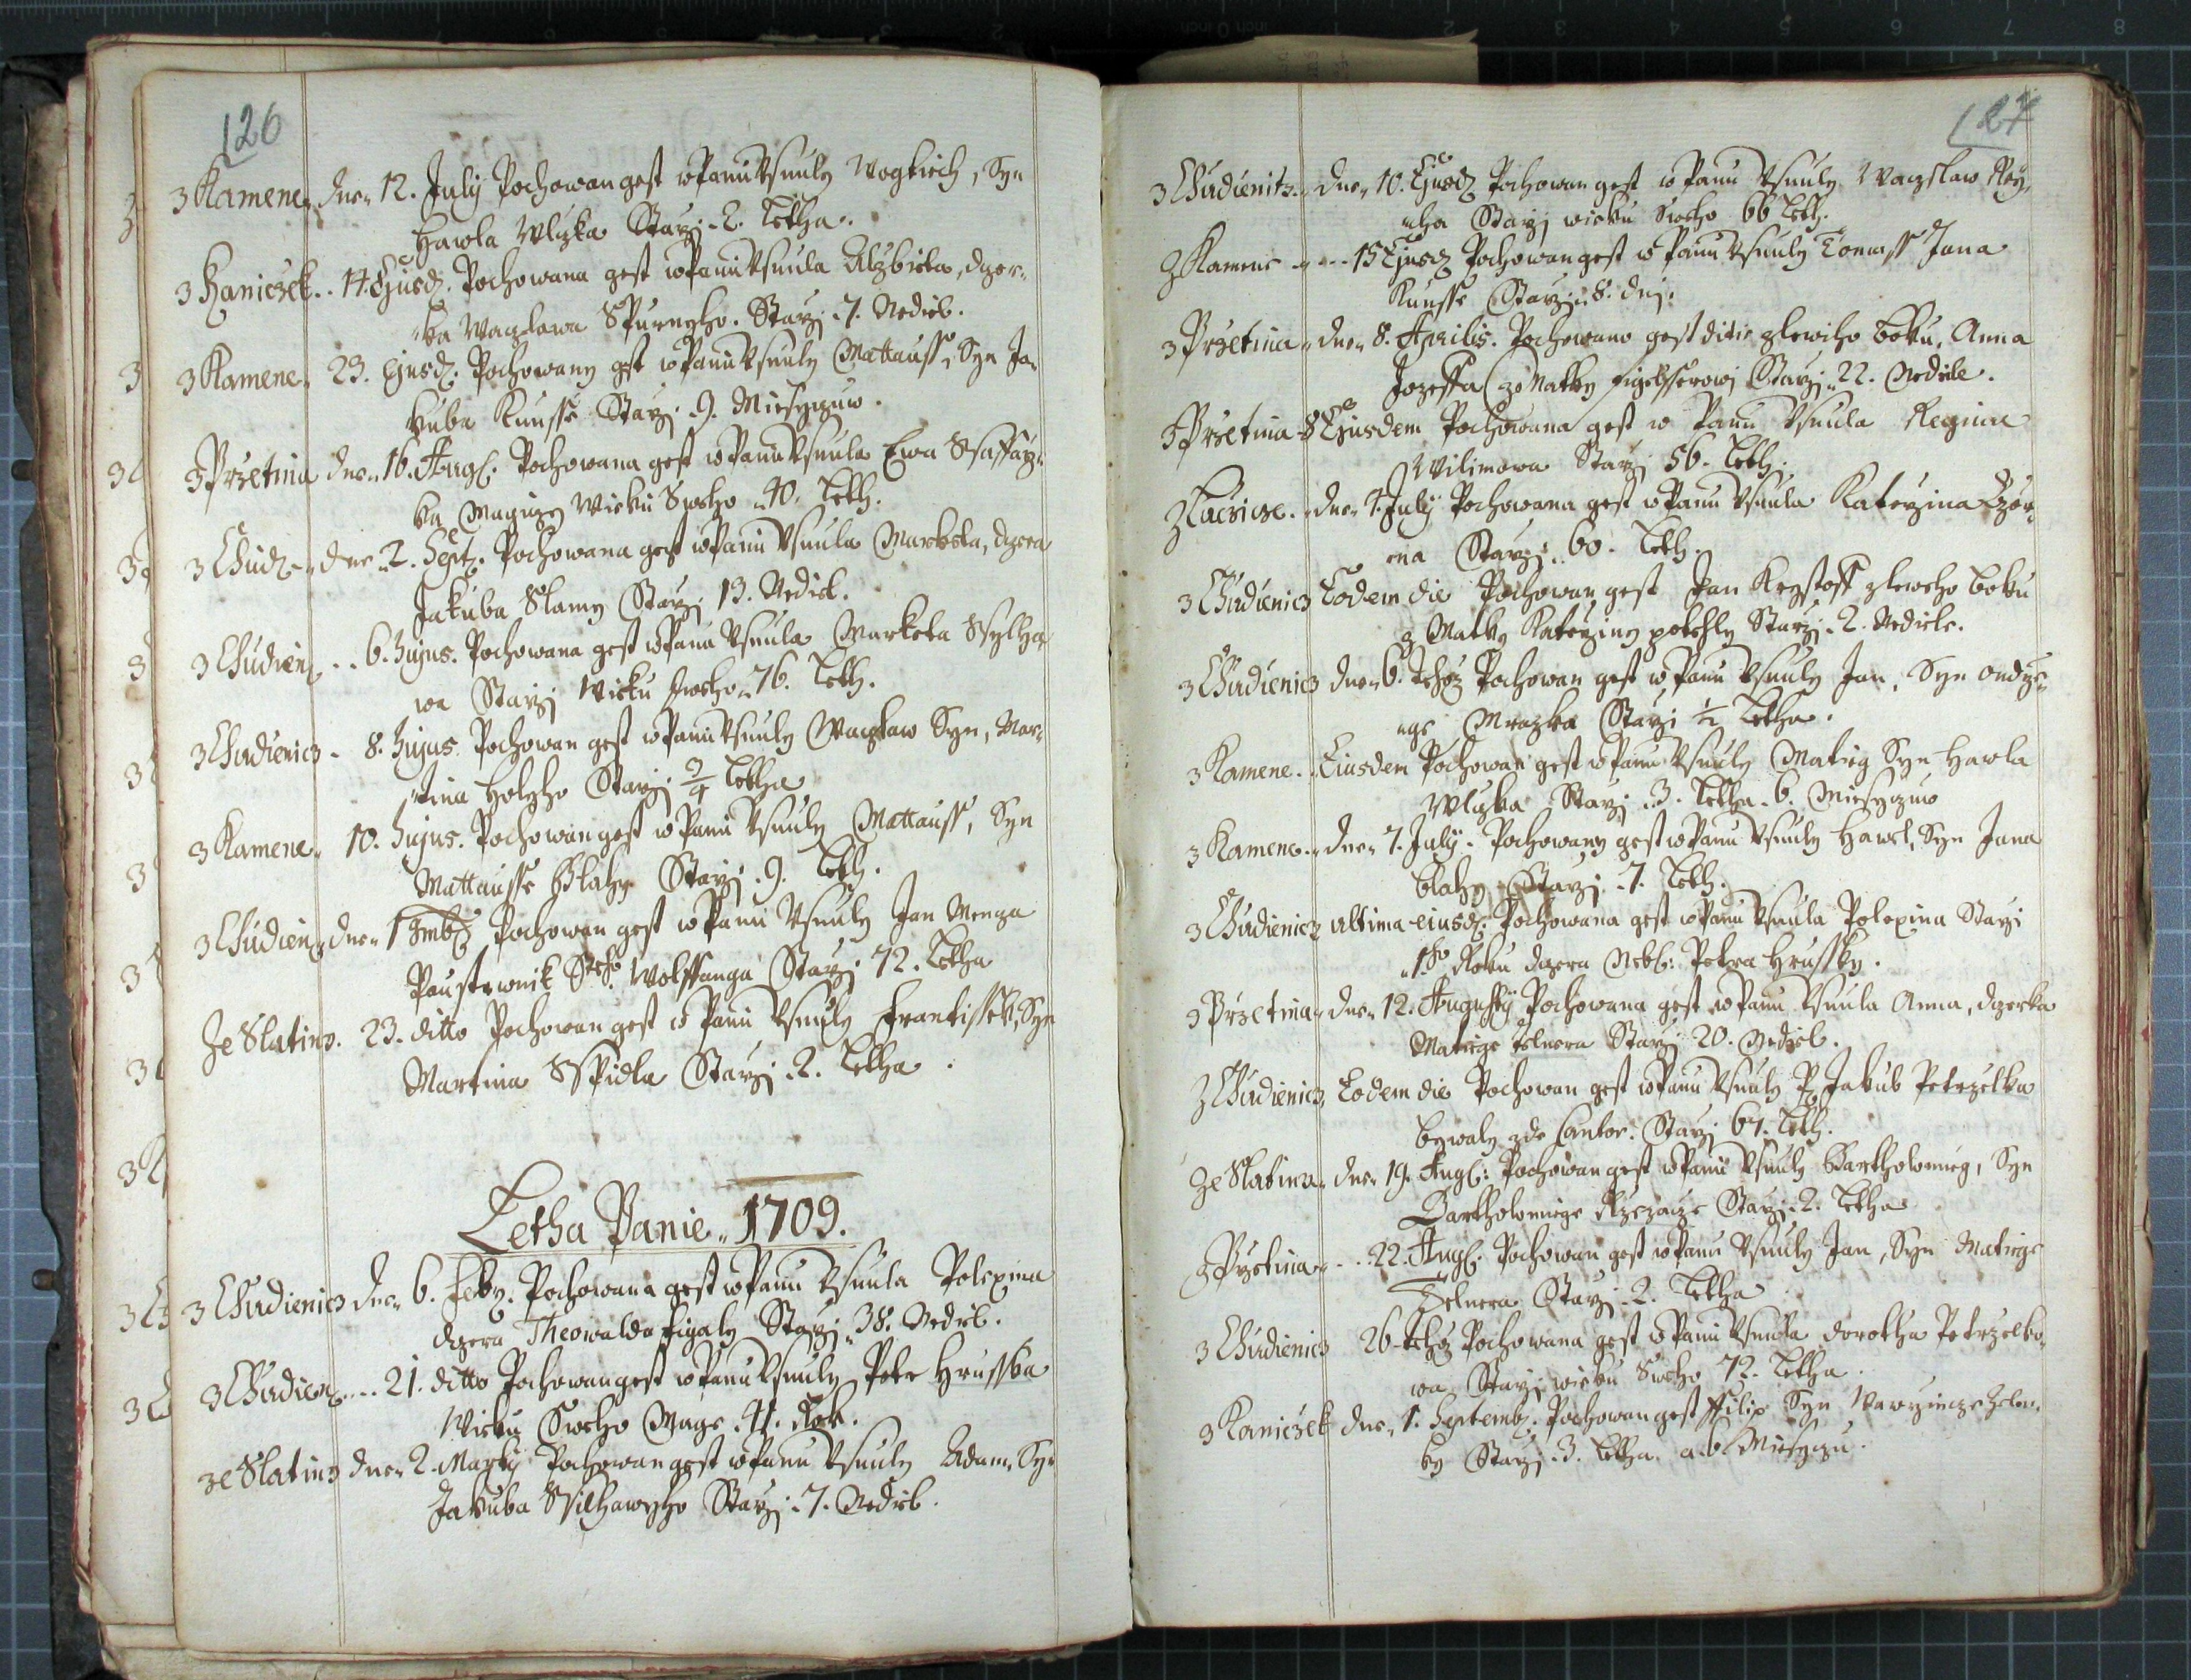 126
z Kamene dne 12. July Pochowan gest w Panu Vsnuly Wogtiech, Syn
Hawla Wlczka Starzj 2. Letha.
z Kaniczek .. 14. Ejusd. Pochowana gest w Panu Vsnula Alzbieta, dcer-
ka Waczlawa Spurneho. Starzj 7. Nediel.
z Kamene 23. Ejusd. Pochowany gest w Panu Vsnuly Mattauss, Syn Ja-
kuba Kunsse Starzj 9. Miesyczuw.
z Przetina dne 16. Aug. Pochowana gest w Panu Vsnula Ewa
ka Magicy Wieku Sweho 40. Leth.
z Chud. dne 2. Sept. Pochowana gest w Panu Vsnula Marketa, dcera
Jakuba Slamy Starzj 13. Nediel.
z Chudien .. 6. hujus. Pochowana gest w Panu Vsnula Marketa Ssylha-
wa Starzj Wieku sweho 76. Leth.
z Chudienicz 8. hujus Pochowan gest w Panu Vsnuly Waczlaw Syn, Mar-
tina Holyho Starzj 3/4 Letha
z Kamene 10. hujus. Pochowan gest w Panu Vsnuly Mattauss, Syn
Mattausse Blahy Starzj 9. Leth.
z Chudien dne 1 Pochowan gest w Panu Vsnuly Jan Menza
Paustewnik Steho Wolffganga Starzj 72. Letha
Ze Slatino. 23. ditto Pochowan gest w Panu Vsnuly Frantissek, Syn
Martina Sspidla Starzj 2. Letha.
Letha Panie 1709.
z Chudienicz dne 6. Feby. Pochowana gest w Panu Vsnula Polexina
dcera Theowalda Figaly Starzj 38. Nediel.
z Chudien .... 21. ditto Pochowan gest w Panu Vsnuly Petr Hrusska
Wieku Sweho Mage 41. Rok.
ze Slatino dne 2. Marty Pochowan gest w Panu Vsnuly Adam, Syn
Jakuba Ssilhaweho Starzj 7. Nediel.
127
z Chudienitz. dne 10. Ejusd. Pochowan gest w Panu Vsnuly Waczslaw Rey-
cha Starzj wieku Sweho 66 Leth.
z Kamene .... 15 Ejusd. Pochowan gest w Panu Vsnuly Tomass Jana
Kunsse Starzj 8. dnj.
z Przetina dne 8. Aprilis. Pochowano gest ditie zleweho boku, Anna
Jozeffa ze Matky Starzj 22. Nediele.
z Przetina 8 Ejusdem Pochowana gest w Panu Vsnula Regina
Wilimowa Starzj 56. Leth.
z dne 4. July Pochowana gest w Panu Vsnula Katerzina
na Starzj 60. Leth.
z Chudienicz Eodem die Pochowan gest Jan Krystoff zleweho boku
z Matky Katerziny Starzj 2. Nediele.
z Chudienicz dne 6. tehoz Pochowan gest w Panu Vsnuly Jan, Syn Ondrze-
ge Mrazka Starzj 1/2 Letha.
z Kamene. Eiusdem Pochowan gest w Panu Vsnuly Matieg Syn Hawla
Wlczka Starzj 3. Letha 6. Miesyczuw
z Kamene dne 7. July. Pochowany gest w Panu Vsnuly Hawel, Syn Jana
Blahy Starzj 7. Leth.
z Chudienicz ultima eiusd. Pochowana gest w Panu Vsnula Polexina Starzj
1ho Roku dcera Nebl: Petra Hrussky.
z Przetina dne 12. Augusty Pochowana gest w Panu Vsnula Anna, dcerka
Matiege Zelnera Starzj 20. Nediel.
z Chudienicz Eodem die Pochowan gest w Panu Vsnuly P. Jakub Petrzelka
bywaly zde Cantor. Starzj 67. Leth.
Ze Slatina dne 19. Aug: Pochowan gest w Panu Vsnuly Bartholomieg, Syn
Bartholomiege Rzezacze Starzj 2. Letha
z Przetina .. 22. Aug. Pochowan gest w Panu Vsnuly Jan, Syn Matiege
Zelnera Starzj 2. Letha
z Chudienicz 26 tehoz Pochowana gest w Panu Vsnula Dorotha Petrzelko-
wa Starzj wieku Sweho 72. Letha.
z Kaniczek dne 1. Septemb. Pochowan gest Filip Syn Wawrzincze Zelen-
ky Starzj 3. Letha. a 6 Miesyczu.